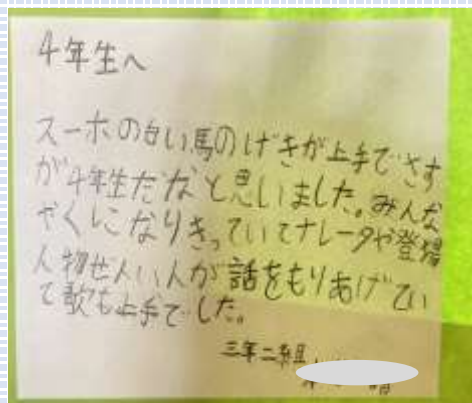 4年生へ
スーホの白い馬のげきが上手でさす
が4年生だなと思いました。みんな
やくになりきっていてナレータや登場
人物ぜんいんが話をもりあげてい
て歌も上手でした。
三年二組